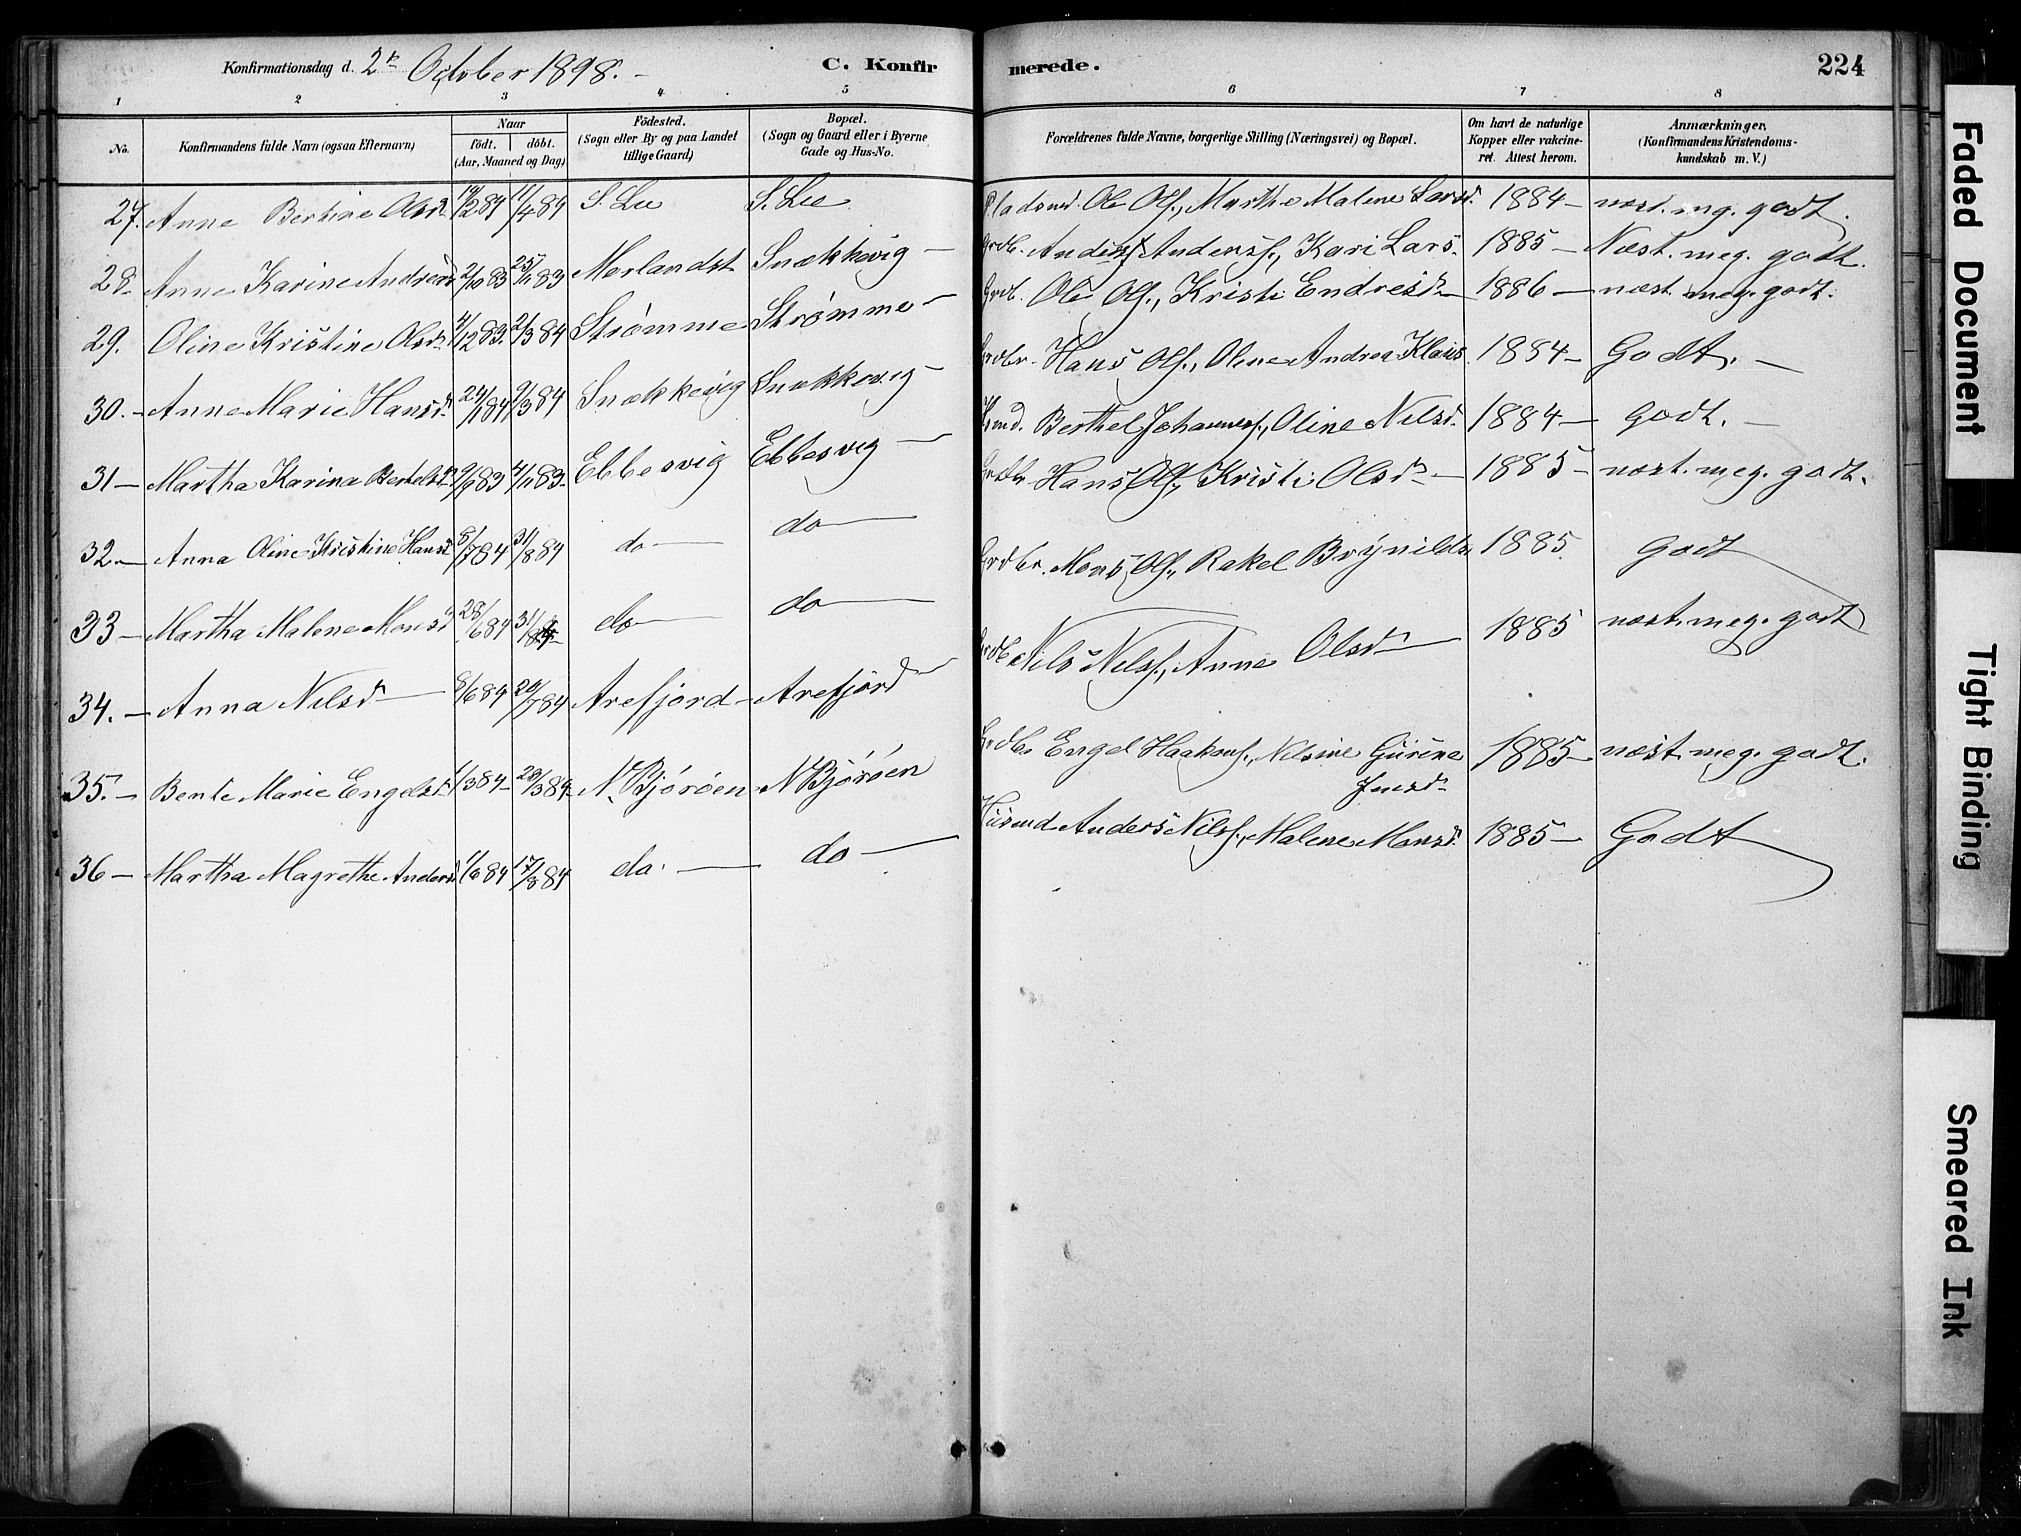 Konfirmationsdag d. 2de October 1898.
C. Konfirmerede.
224
1 2 3 4 5 6 7 8
No.
Konfirmandens fulde Navn (ogsaa Efternavn)
Naar
Födt. döbt.
(Aar, Maaned og Dag)
Födested.
(Sogn eller By og paa Landet tillige Gaard)
Bopæl.
(Sogn og Gaard eller i Byerne Gade og Hus-No.
Forældrenes fulde Navne, borgerlige Stilling (Næringsvei) og Bopæl.
Om havt de naturlige Kopper eller vakcineret. Attest herom.
Anmærkninger.
(Konfirmandens Kristendomskundskab m. V.)
27. Anne Bertine Olsd 14/2 84 11/4 84 S. Lie S. Lie Pladsmd. Ole Ols., Marthe Malene Larsd. 1884 – næst. mg. godt.
28. Anne Karine Andersd 2/10 83 25/11 83 Morlandst Snækkevig – Grdb. Anders Anders., Kari Lars. 1885 – Næst. meg. godt.
29. Oline Kristine Olsd 4/12 83. 2/3 84 Strømme Strømme – Grdb. Ole Ols., Kristi Endresd – 1886 – næst. meg. godt.
30. – Anne Marie Hansd 24/1 84 9/3 84 Snækkevig Snækkevig – Grdbr. Hans Ols., Oline Andrea Klaus. 1884 – Godt. –
31 – Martha Karina Bertelsd 9/9 83 4/11 83 – Ebbesvig Ebbesvig – Berthel Johannes., Oline Nilsd. 1884 – godt. –
32. – Anna Oline Kristine Hansd 8/7 84 31/8 84 do – do – Grdbr Hans Ols., Kristi Olsd – 1885 – næst. meg. godt.
33 – Martha Malene Monsd 28/6 84 31/8 84 do – do – Grdbr. Mons Ols., Rakel Brynilds 1885 Godt
34. – Anna Nilsd – 8/6 84 20/7 84 Arefjord – Arefjord – Grdb Nils Nils., Anne Olsd – 1885 næst. meg. godt
35. – Bente Marie Engelsd 1/3 84 – 23/3 84 – N. Bjøröen – N Bjøröen Grdbr Engel Haakons., Nilsine Gurine
Jensd – 1885 – næst. meg. godt.
36 – Martha Magrethe Andersd 1/3 84 17/3 84 do. – do – Husmd Anders Nils., Malene Monsd. 1885 – Godt
Faded Document
Tight Binding
Smeared Ink